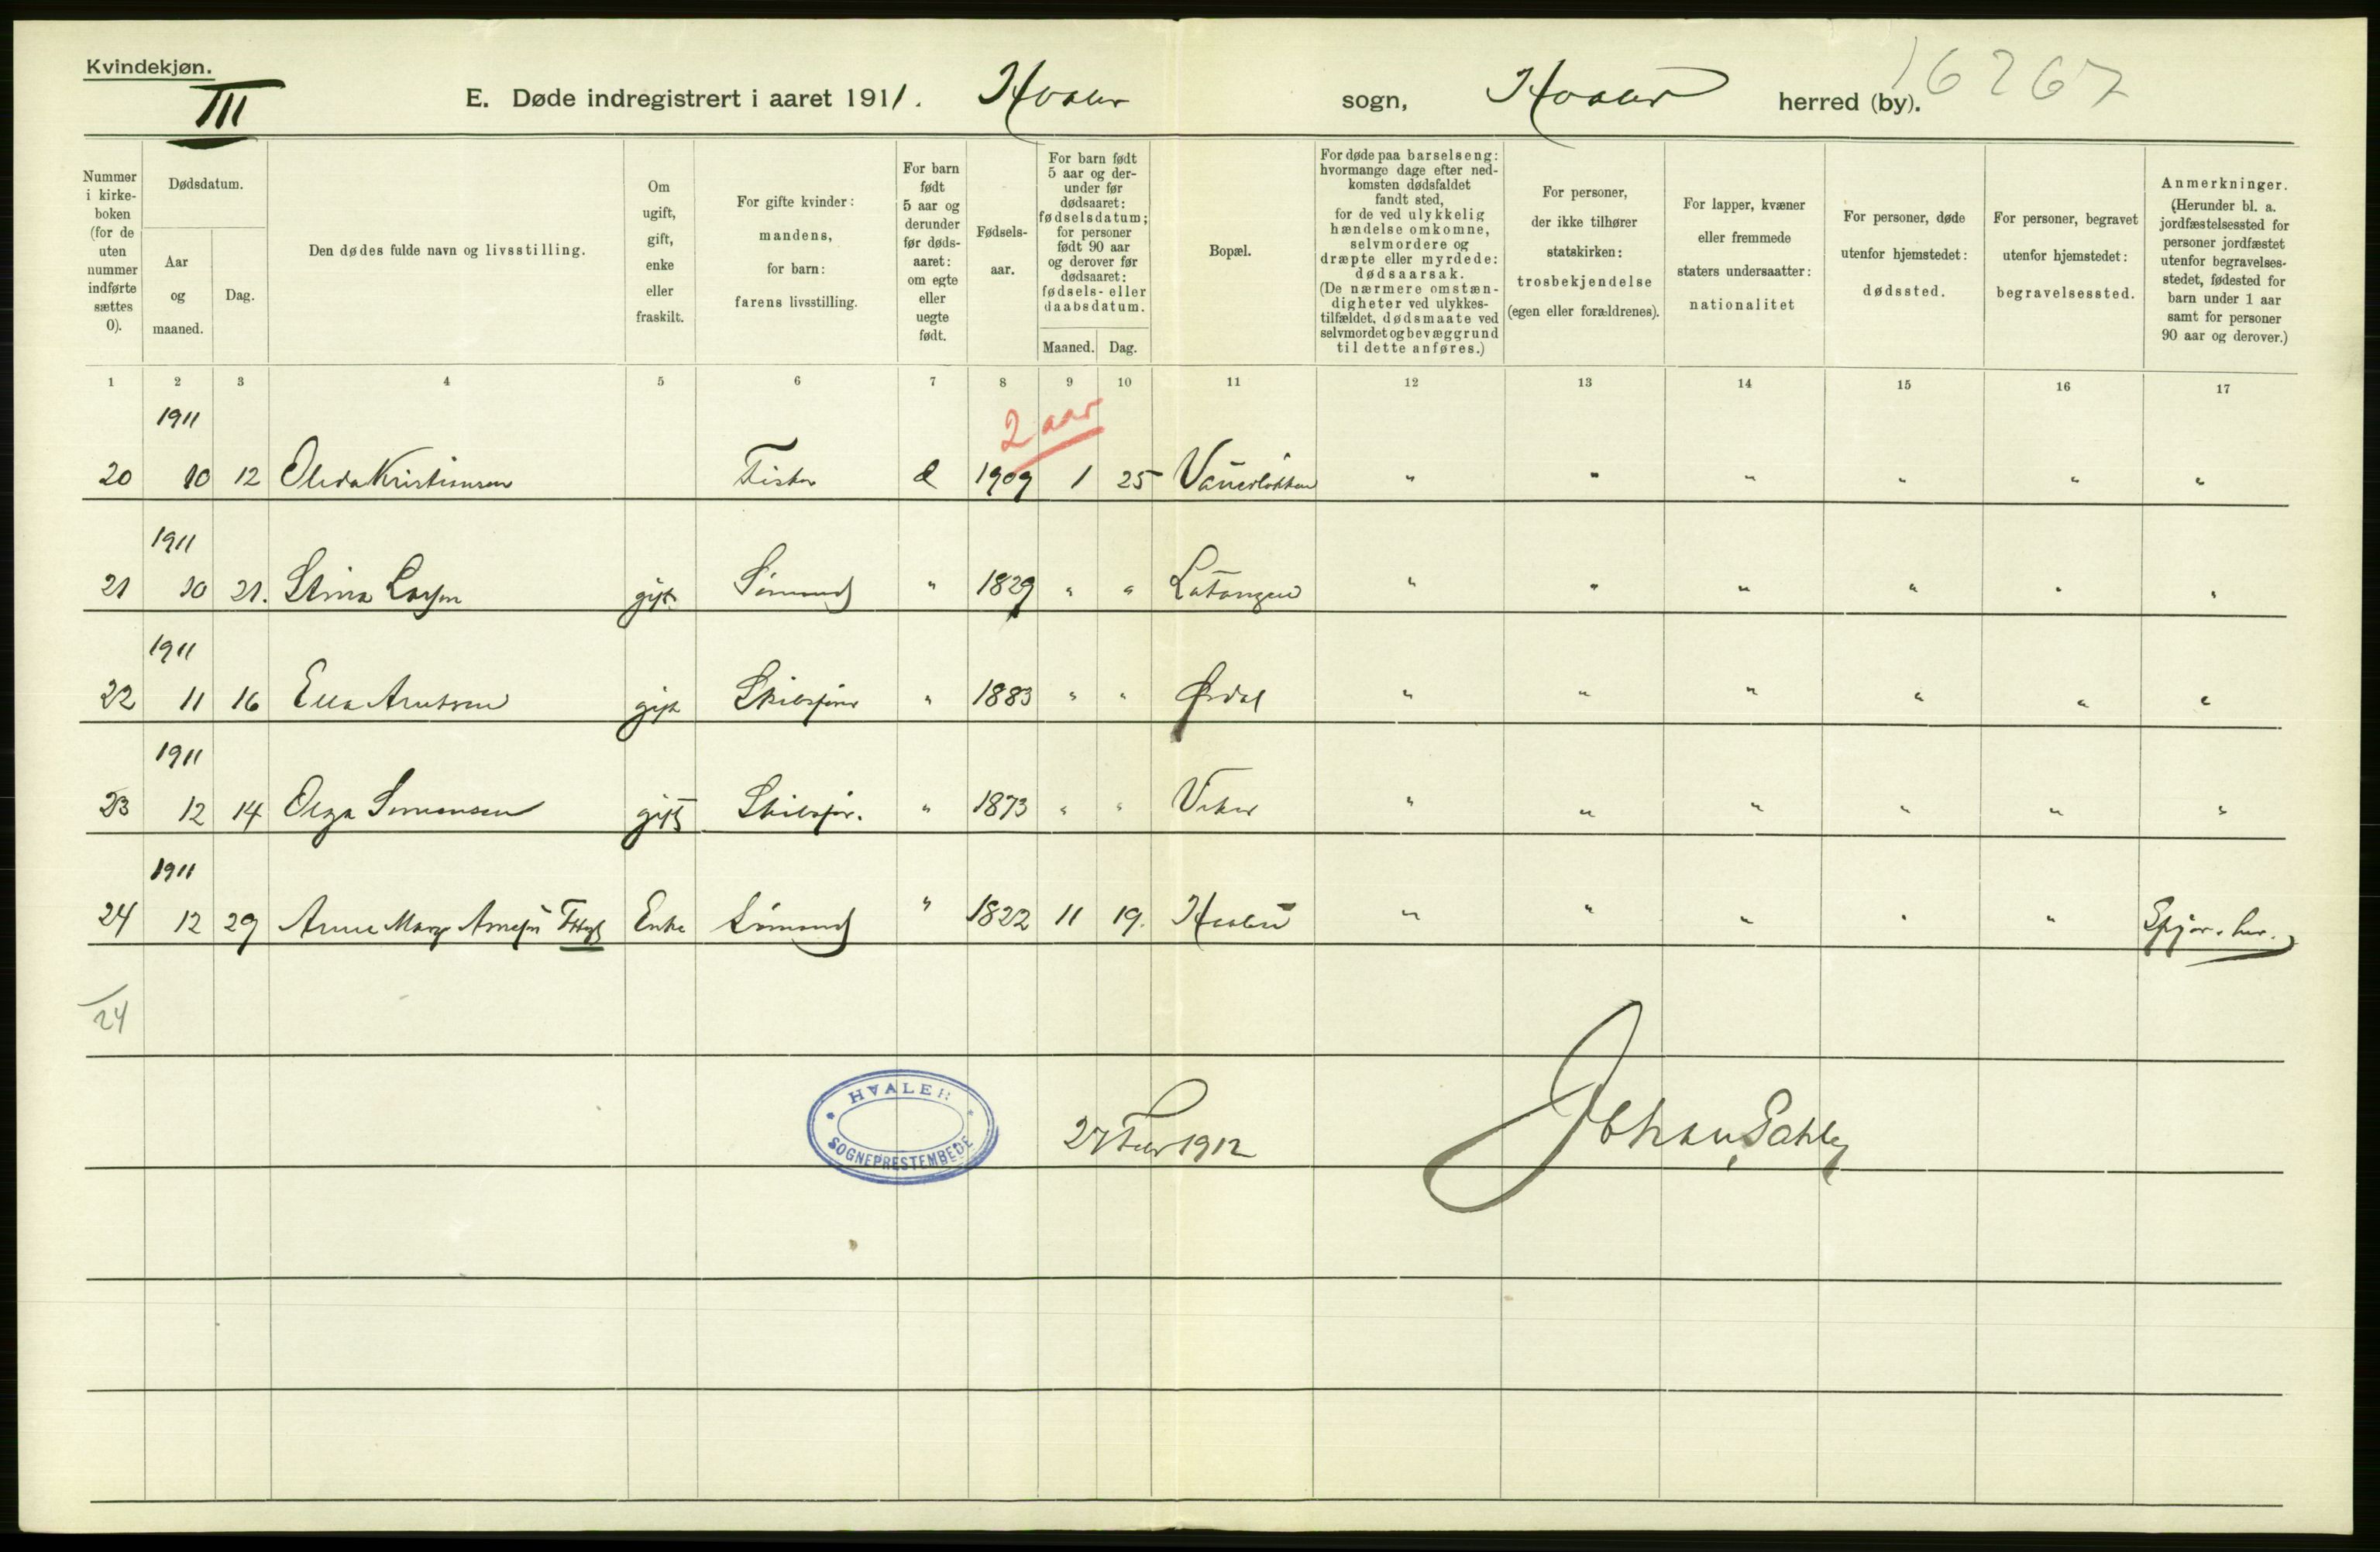 Kvindekjøn.
III
E. Døde indregistrert i aaret 1911. Hvaler sogn, Hvaler herred (by).
16267
Nummer i kirke-boken (for de uten nummer indførte sættes 0).
Dødsdatum.
Aar og maaned.
Dag.
Den dødes fulde navn og livsstilling.
Om ugift, gift, enke eller fraskilt.
For gifte kvinder: mandens, for barn: farens livsstilling.
For barn født 5 aar og derunder før døds-aaret: om egte eller uegte født.
Fødsels-aar.
For barn født 5 aar og der-under før dødsaaret: fødselsdatum; for personer født 90 aar og derover før dødsaaret: fødsels- eller daabsdatum.
Maaned. Dag.
Bopæl.
For døde paa barselseng: hvormange dage efter ned-komsten dødsfaldet fandt sted, for de ved ulykkelig hændelse omkomne, selvmordere og dræpte eller myrdede: dødsaarsak. (De nærmere omstæn-digheter ved ulykkes-tilfældet, dødsmaate ved selvmordet og bevæggrund til dette anføres.)
For personer, der ikke tilhører statskirken: trosbekjendelse (egen eller forældrenes).
For lapper, kvæner eller fremmede staters undersaatter: nationalitet
For personer, døde utenfor hjemstedet: dødssted.
For personer, begravet utenfor hjemstedet: begravelsessted.
Anmerkninger. (Herunder bl. a. jordfæstelsessted for personer jordfæstet utenfor begravelses-stedet, fødested for barn under 1 aar samt for personer 90 aar og derover.)
1 2 3 4 5 6 7 8 9 10 11 12 13 14 15 16 17
1911 2 aar
20 10 12 Olida Kristiansen Fisker 1909 1 25 " " " " " "
1911
21 10 21. Stina Larsen gift Sømand " 1829 " " " " " " " "
1911
22 11 16 Ella Arntsen gift Skibsfører " 1883 " " Ørdal " " " " " "
1911
23 12 14 Olga Simensen gift Skibsfør. " 1873 " " Viker " " " " " "
1911
24 12 29 Anne Marg. Enke Sømand " 1822 11 19. Hvaler " " " " " Spjær, her.
24
HVALER
SOGNEPRESTEMBEDE
27 Febr 1912
Johan